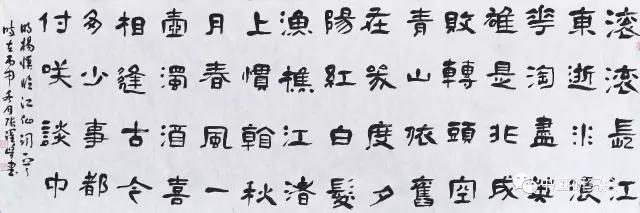 滚滚長江
東逝水浪
華淘盡英
雄是非成
敗轉頭空
青山依舊
在幾度夕
陽紅白髮
漁樵江渚
上慣看秋
月春風一
壺濁酒喜
相逢古今
多少事都
付咲談中
明楊慎臨江仙詞
歲在丙申冬月